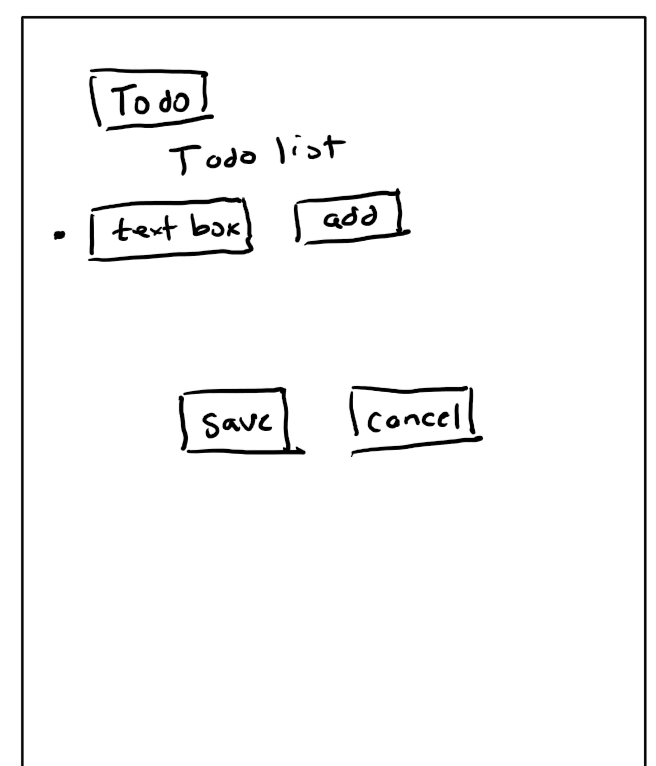 Todo
Todo list
text box add
Save cancel